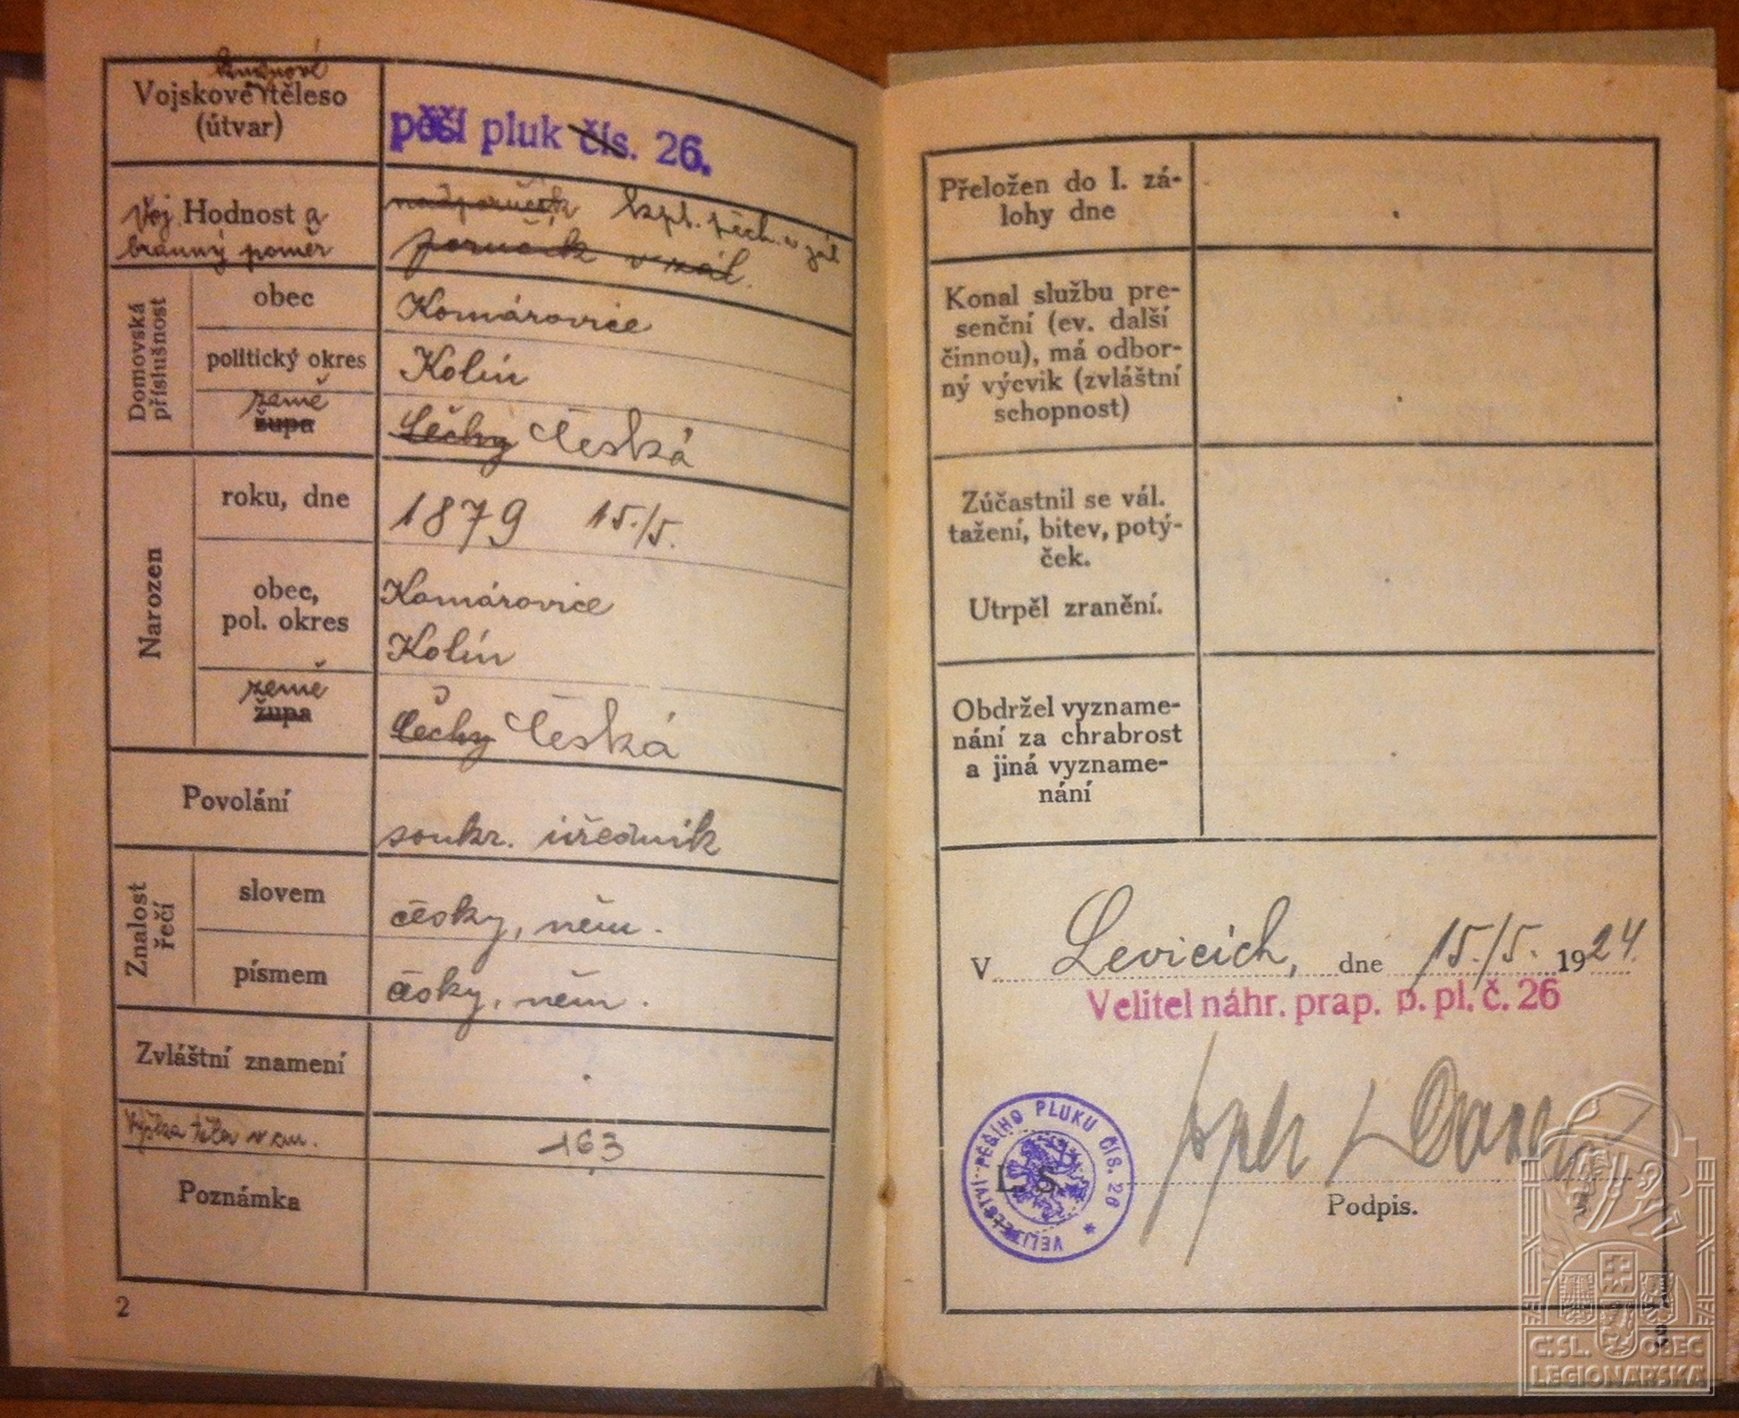 kmenové
Vojskové těleso
(útvar)
pěší pluk čís. 26.
Voj. Hodnost a
branný poměr
nadporučík kpt. pěch. v zál
poručík v zál.
Domovská
příslušnost
obec
Komárovice
politický okres
Kolín
země
župa
Čechy Česká
Narozen
roku, dne
1879 15./5.
obec,
pol. okres
Komárovice
Kolín
země
župa
Čechy Česká
Povolání
soukr. úředník
Znalost
řečí
slovem
česky, něm.
písmem
česky, něm.
Zvláštní znamení
Výška těla v cm.
163
Poznámka
2
Přeložen do I. zá-
lohy dne
Konal službu pre-
senční (ev. další
činnou), má odbor-
ný výcvik (zvláštní
schopnost)
Zúčastnil se vál.
tažení, bitev, potý-
ček.
Utrpěl zranění.
Obdržel vyzname-
nání za chrabrost
a jiná vyzname-
nání
V Levicích, dne 15./5. 1924.
Velitel náhr. prap. p. pl. č. 26
VELITELSTVÍ PĚŠÍHO PLUKU ČÍS. 26
L. S.
Podpis.
3
ČSL. OBEC
LEGIONÁŘSKÁ